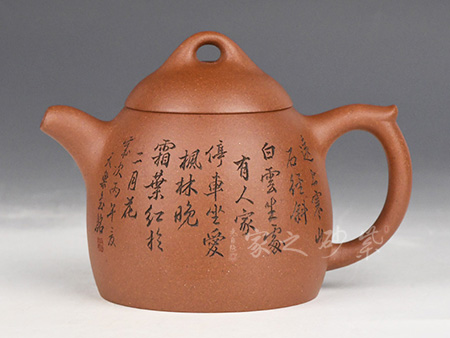 遠上寒山
石徑斜
白雲生處
有人家
停車坐愛
楓林晚
霜葉紅於
二月花
次丙午
紫砂之家